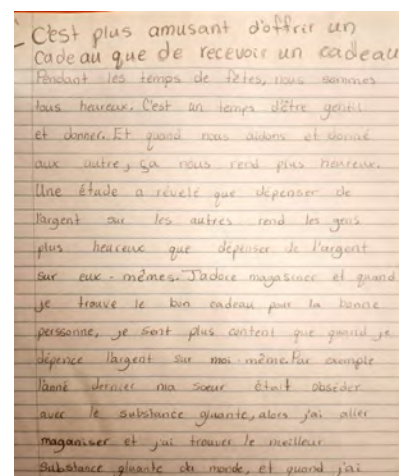 C'est plus amusant d'offrir un
cadeau que de recevoir un cadeau
Pendant les temps de fêtes, nous sommes
tous heureux. C'est un temps d'être gentil
et donner. Et quand nous aidons et donné
aux autre, ça nous rend plus heureux.
Une étude a révélé que dépenser de
l'argent sur les autres rend les gens
plus heureux que dépenser de l'argent
sur eux-mêmes. J'adore magasiner et quand
je trouve le bon cadeau pour la bonne
perssonne, je sent plus content que quand je
dépence l'argent sur moi-même. Par exemple
l'anné dernier ma soeur était obséder
avec le substance gluante, alors j'ai aller
maganiser et j'ai trouver le meilleur
substance gluante du monde, et quand j'ai